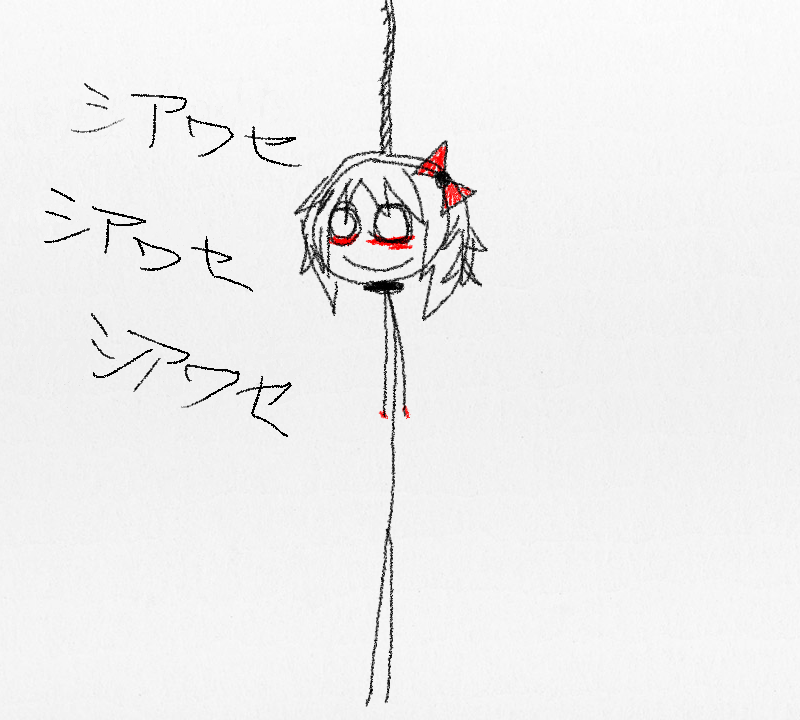 シアワセ
シアワセ
シアワセ